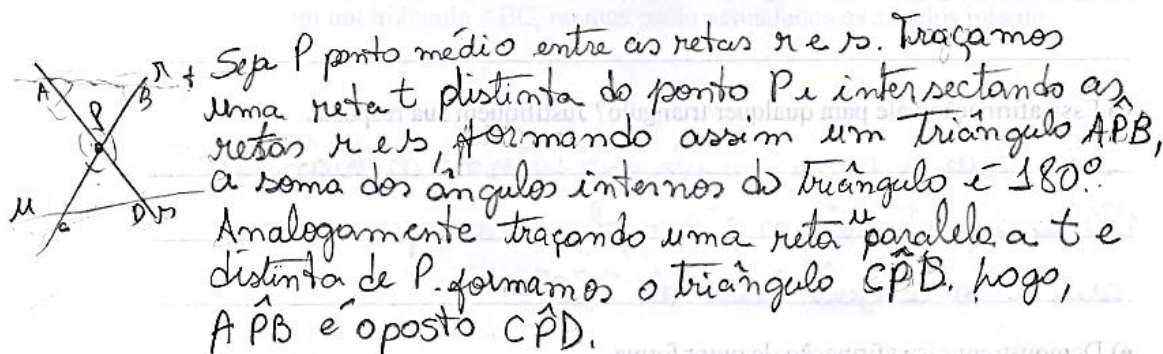 Seja P ponto médio entre as retas r e s. Traçamos
uma reta t distinta do ponto P e intersectando as
retas r e s, formando assim um triângulo AP̂B,
a soma dos ângulos internos do triângulo é 180º.
Analogamente traçando uma reta u paralela a t e
distinta de P. formamos o triângulo CP̂D. Logo,
AP̂B é oposto CP̂D.
A
P
B
r
t
u
C
D
s